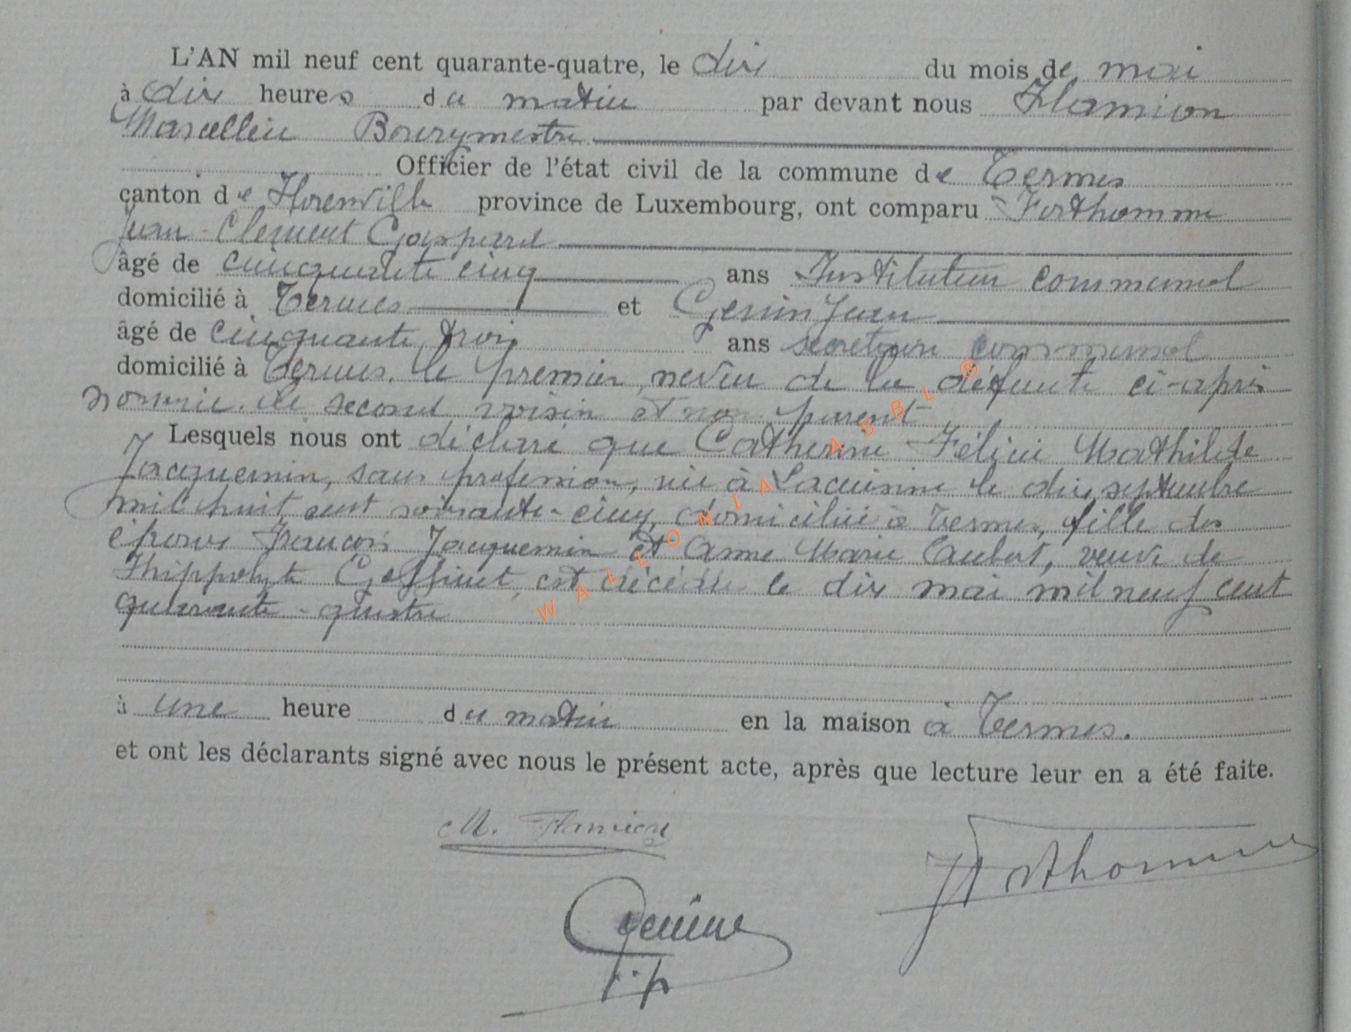 L'AN mil neuf cent quarante-quatre, le dix du mois de mai
à dix heures du matin par devant nous Flamion
Marcellin Bourgmestre
Officier de l'état civil de la commune de Termes
canton de Florenville province de Luxembourg, ont comparu Forthomme
Jean-Clément Gaspard
âgé de cinquante cinq ans Instituteur communal
domicilié à Termes et Genin Jean
âgé de cinquante trois ans secrétaire communal
domicilié à Termes, le premier neveu de la défunte ci-après
nommée, le second voisin et non parent
Lesquels nous ont déclaré que Catherine Félicie Mathilde
Jacquemin, sans profession, née à Lacuisine le dix septembre
mil huit cent soixante-cinq, domiciliée à Termes, fille des
époux François Jacquemin et Anne Marie Laubert, veuve de
Hippolyte Goffinet, est décédée le dix mai mil neuf cent
quarante-quatre
à une heure du matin en la maison à Termes.
et ont les déclarants signé avec nous le présent acte, après que lecture leur en a été faite.
M. Flamion
JForthomme
Genin
WALLONIA ASBL